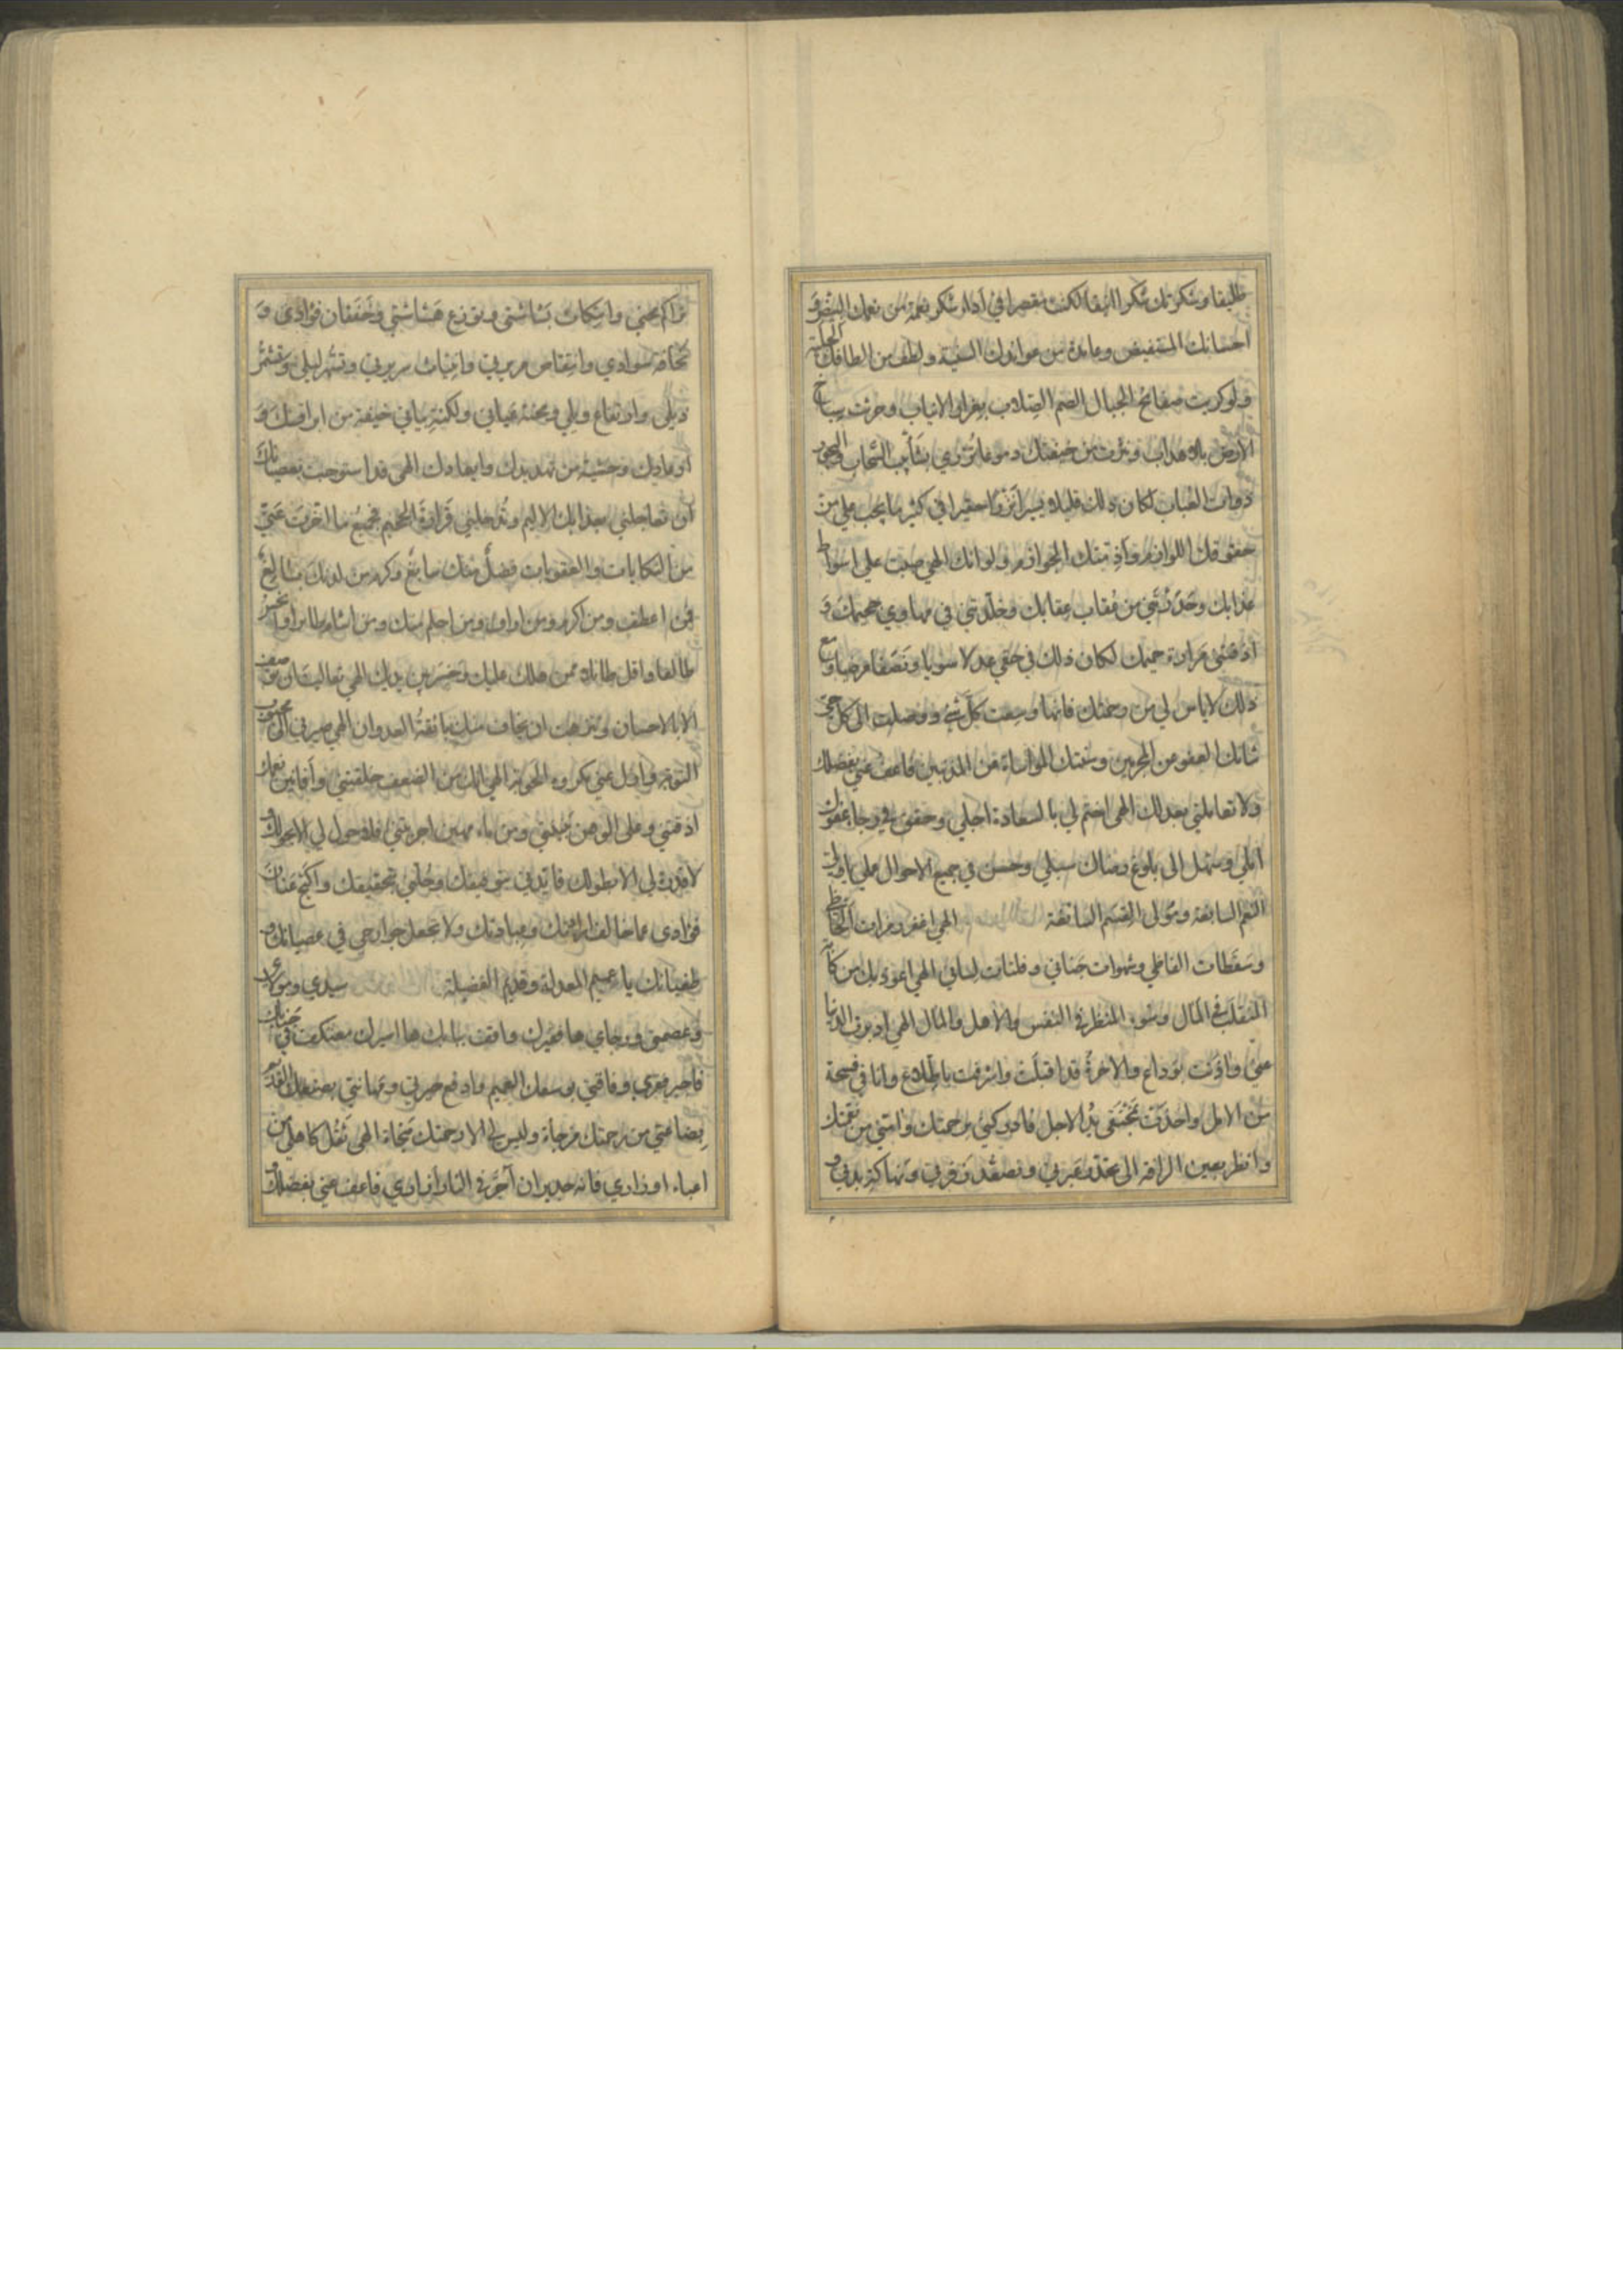 طليقا وشكرتك شكرا انيقا لكنت مقصرا في اداء شكر نعمة من نعمك البيض و
احسانك المستفيض ومائدة من موائدك السنية ولطف من الطافك الجلية
ولو كربت صفائح الجبال الصم الصلاب بغراب الانياب وحرثت سباخ
الارض باهداب ونزت من خيفتك دموعا تزري بشآبيب السحاب والبحور
ذوات العباب لكان ذلك قليلا يسيرا نزرا حقيرا في كثير ما يجب علي من
حقوقك اللوازم وآفقتك الجوازم ولو انك الهي صببت علي اسواط
عذابك وحدرتني من عقاب عقابك وخلدتني في مهاوي جحيمك و
اذقتني مرارة حميمك لكان ذلك في حقي عدلا سويا ونصفا مرضيا ومع
ذلك لا ياس لي من رحمتك فانها وسعت كل شئ ووصلت الى كل حي
شانك العفو عن المجرمين وسنتك المواساة عن المذنبين فاعف عني بفضلك
ولا تعاملني بعدلك الهي اختم لي بالسعادة اجلي وحقق في رجاء عفوك
املي وسهل الى بلوغ رضاك سبلي وحسن في جميع الاحوال عملي يا ولي
النعم السابغة ومولي القسم السائغة الهي اغفر رمزات الحاظي
وسقطات الفاظي وشهوات جناني وفلتات لساني الهي اعوذ بك من كآبة
المنقلب في المال وسوء المنظر في النفس والاهل والمال الهي ادبرت الدنيا
عني واذنت بوداع والاخرة قد اقبلت واشرفت باطلاع وانا في فسحة
من الامل واخذت بمخنقي يد الاجل فادركني برحمتك وامني من نقمتك
وانظر بعين الرافة الى تحدر عبرتي وتصعد زفرتي ونهاكة بدني و
تراكم محني وانتكاث بشاشتي وتوزع هشاشتي وخفقان فؤادي و
نحافة سوادي وانتقاض مريرتي وانبثاث سريرتي وتشهر ليلي وتشمر
ذيلي وارتفاع ويلي ومحنة عياني ولكنة بياني خيفة من ابراقك و
ارعادك وخشية من تهديدك وايعادك الهي قد استوجبت بعصيانك
ان تعاجلني بعذابك الاليم وتدخلني قرارة الجحيم فجميع ما اقترفت عني
من النكايات والعقوبات فضل منك سابغ وكرم من لدنك بالغ
فمن اعطف ومن اكرم ومن اراف ومن احلم منك ومن اشام طايرا وانحس
طالعا واقل طائلا ممن هلك عليك وخسر بين يديك الهي تعاليت ان توصف
الا بالاحسان وتنزهت ان يخاف منك بائقة العدوان الهي صيرني الى محبوب
التوبة وازل عني مكروه الحوبة الهي انك من الضعف خلقتني وافانين نعمك
اذقتني وعلى الوهن جبلتني ومن ماء مهين اجريتني فلا حول لي الا بحولك و
لا قدرة لي الا بطولك فايدني بتوفيقك وحلني بتحقيقك واكبح عنان
فؤادي عما خالف ارادتك وعبادتك ولا تجعل جوارحي في عصيانك و
طغيانك يا عميم المعدلة وقديم الفضيلة سيدي ومولاي
وعصمتي ورجاي ها فقيرك واقف ببابك ها اسيرك معتكف في جنابك
فاجبر فقري وفاقتي بوسعك العميم وادفع حيرتي ومهانتي بصنعك القديم
بضاعتي من رحمتك مزجاة وليس لي الا رحمتك منجاة الهي ثقل كاهلي من
اعباء اوزاري فانه جدير ان آجر في النار ازاري فاعف عني بفضلك و